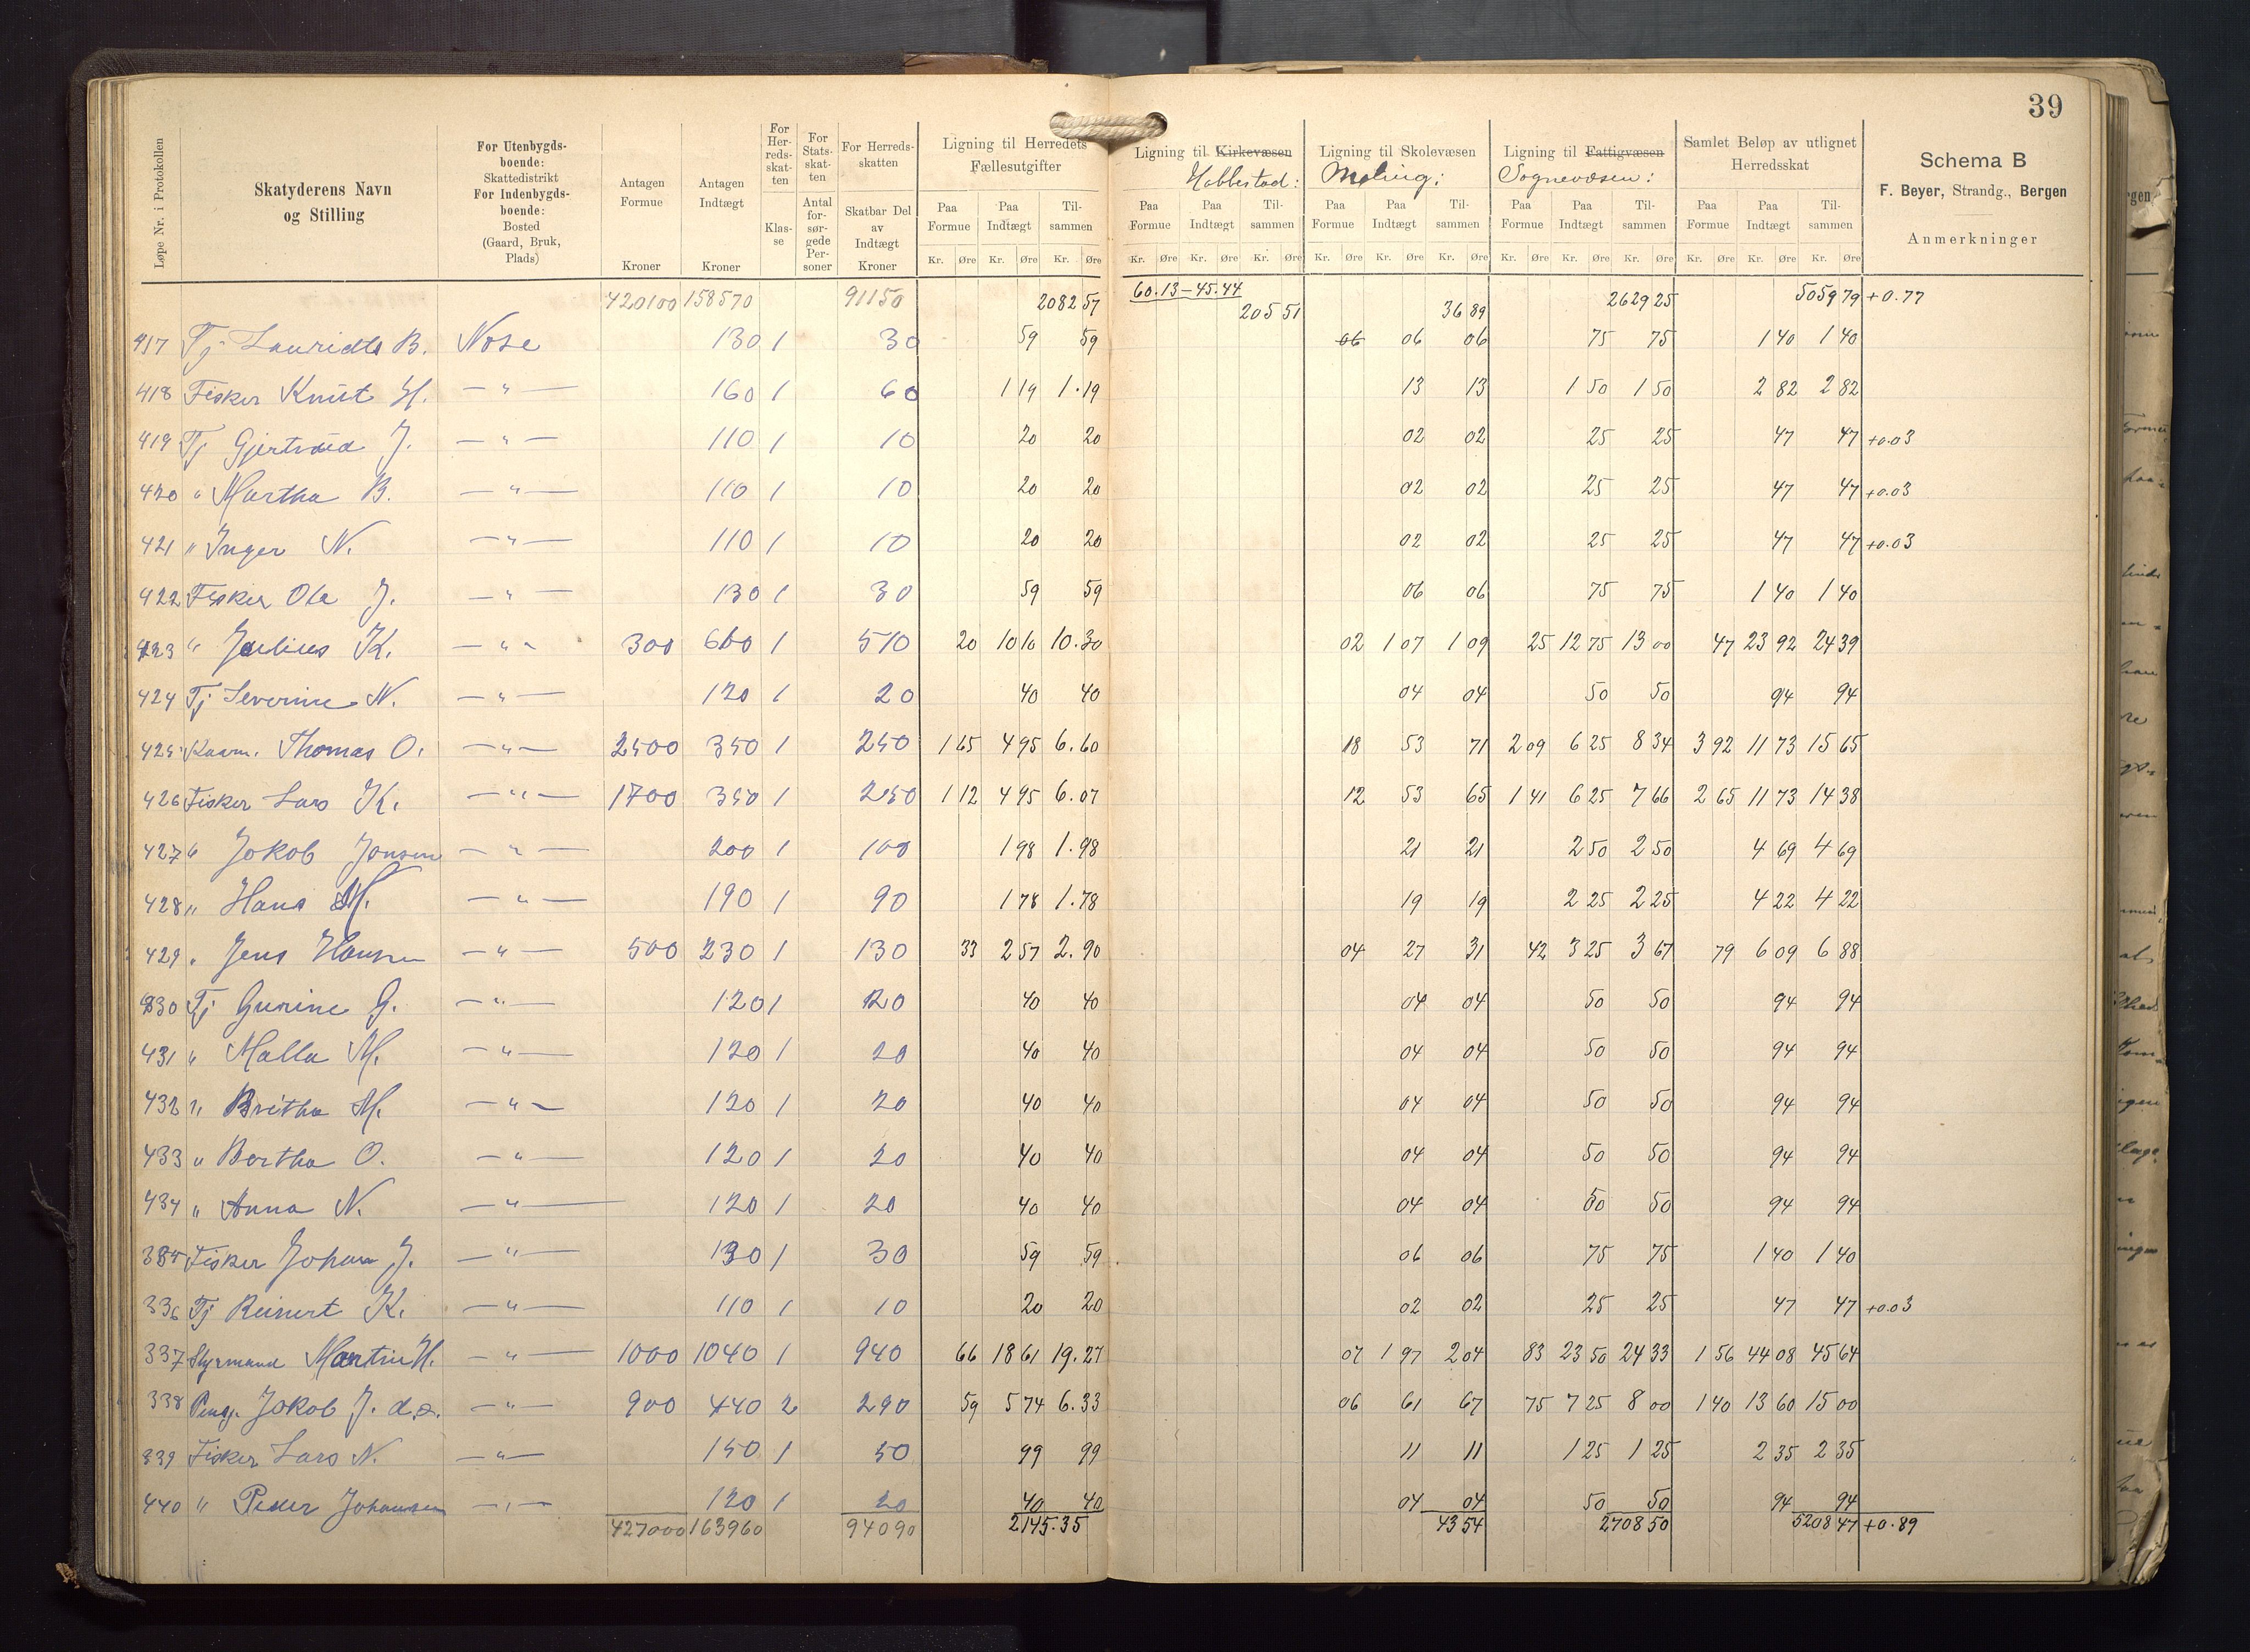 39
Løpe Nr. i Protokollen
Skatyderens Navn og Stilling
For Utenbygdsboende: Skattedistrikt For Indenbygdsboende: Bosted (Gaard, Bruk, Plads)
Antagen Formue Kroner
Antagen Indtægt Kroner
For Herredsskatten Klasse
For Statsskatten Antal forsørgede Personer
For Herredsskatten Skatbar Del av Indtægt Kroner
Ligning til Herredets Fællesutgifter
Ligning til Kirkevæsen Hobbestad:
Ligning til Skolevæsen Møling:
Ligning til Fattigvæsen Sognevæsen:
Samlet Beløp av utlignet Herredsskat
Schema B
F. Beyer, Strandg., Bergen
Anmerkninger
Paa Formue Paa Indtægt Tilsammen Paa Formue Paa Indtægt Tilsammen Paa Formue Paa Indtægt Tilsammen Paa Formue Paa Indtægt Tilsammen Paa Formue Paa Indtægt Tilsammen
Kr. Øre Kr. Øre Kr. Øre Kr. Øre Kr. Øre Kr. Øre Kr. Øre Kr. Øre Kr. Øre Kr. Øre Kr. Øre Kr. Øre Kr. Øre Kr. Øre Kr. Øre
420100 158570 91150 2082 57 60.13 – 45.44 205 51 36 89 2629 25 5059 79 +0.77
417 Tj Lauridts B. Nose 130 1 30 59 59 06 06 06 75 75 1 40 1 40
418 Fisker Knut H. — " — 160 1 60 1 19 1.19 13 13 1 50 1 50 2 82 2 82
419 Tj Gjertrud J. — " — 110 1 10 20 20 02 02 25 25 47 47 +0.03
420 " Martha B. — " — 110 1 10 20 20 02 02 25 25 47 47 +0.03
421 " Inger N. — " — 110 1 10 20 20 02 02 25 25 47 47 +0.03
422 Fisker Ole J. — " — 130 1 30 59 59 06 06 75 75 1 40 1 40
423 " Julius K. — " — 300 610 1 510 20 10 10 10.30 02 1 07 1 09 25 12 75 13 00 47 23 92 24 39
424 Tj Severine N. — " — 120 1 20 40 40 04 04 50 50 94 94
425 Kaarm. Thomas O. — " — 2500 350 1 250 1 65 4 95 6.60 18 53 71 2 09 6 25 8 34 3 92 11 73 15 65
426 Fisker Lars K. — " — 1700 350 1 250 1 12 4 95 6.07 12 53 65 1 41 6 25 7 66 2 65 11 73 14 38
427 " Jokob Jonsen — " — 200 1 100 1 98 1.98 21 21 2 50 2 50 4 69 4 69
428 " Hans M. — " — 190 1 90 1 78 1.78 19 19 2 25 2 25 4 22 4 22
429 " Jens Hansen — " — 500 230 1 130 33 2 57 2.90 04 27 31 42 3 25 3 67 79 6 09 6 88
430 Tj Gurine G. — " — 120 1 20 40 40 04 04 50 50 94 94
431 " Malla M. — " — 120 1 20 40 40 04 04 50 50 94 94
432 " Britha M. — " — 120 1 20 40 40 04 04 50 50 94 94
433 " Bertha O. — " — 120 1 20 40 40 04 04 50 50 94 94
434 " Anna N. — " — 120 1 20 40 40 04 04 50 50 94 94
335 Fisker Johan J. — " — 130 1 30 59 59 06 06 75 75 1 40 1 40
336 Tj Reinert K. — " — 110 1 10 20 20 02 02 25 25 47 47 +0.03
337 Styrmand Martin H. — " — 1000 1040 1 940 66 18 61 19.27 07 1 97 2 04 83 23 50 24 33 1 56 44 08 45 64
338 Pensj. Jokob J. d.e. — " — 900 440 2 290 59 5 74 6.33 06 61 67 75 7 25 8 00 1 40 13 60 15 00
339 Fisker Lars N. — " — 150 1 50 99 99 11 11 1 25 1 25 2 35 2 35
440 " Peder Johansen — " — 120 1 20 40 40 04 04 50 50 94 94
427000 163960 94090 2145.35 43 54 2708 50 5208 47 +0.89